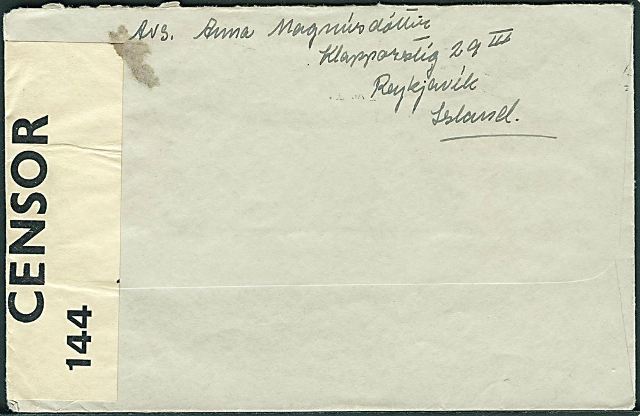 Avs. Anna Magnúsdóttir
Klapparstíg 29 III
Reykjavík
Island.
CENSOR
144